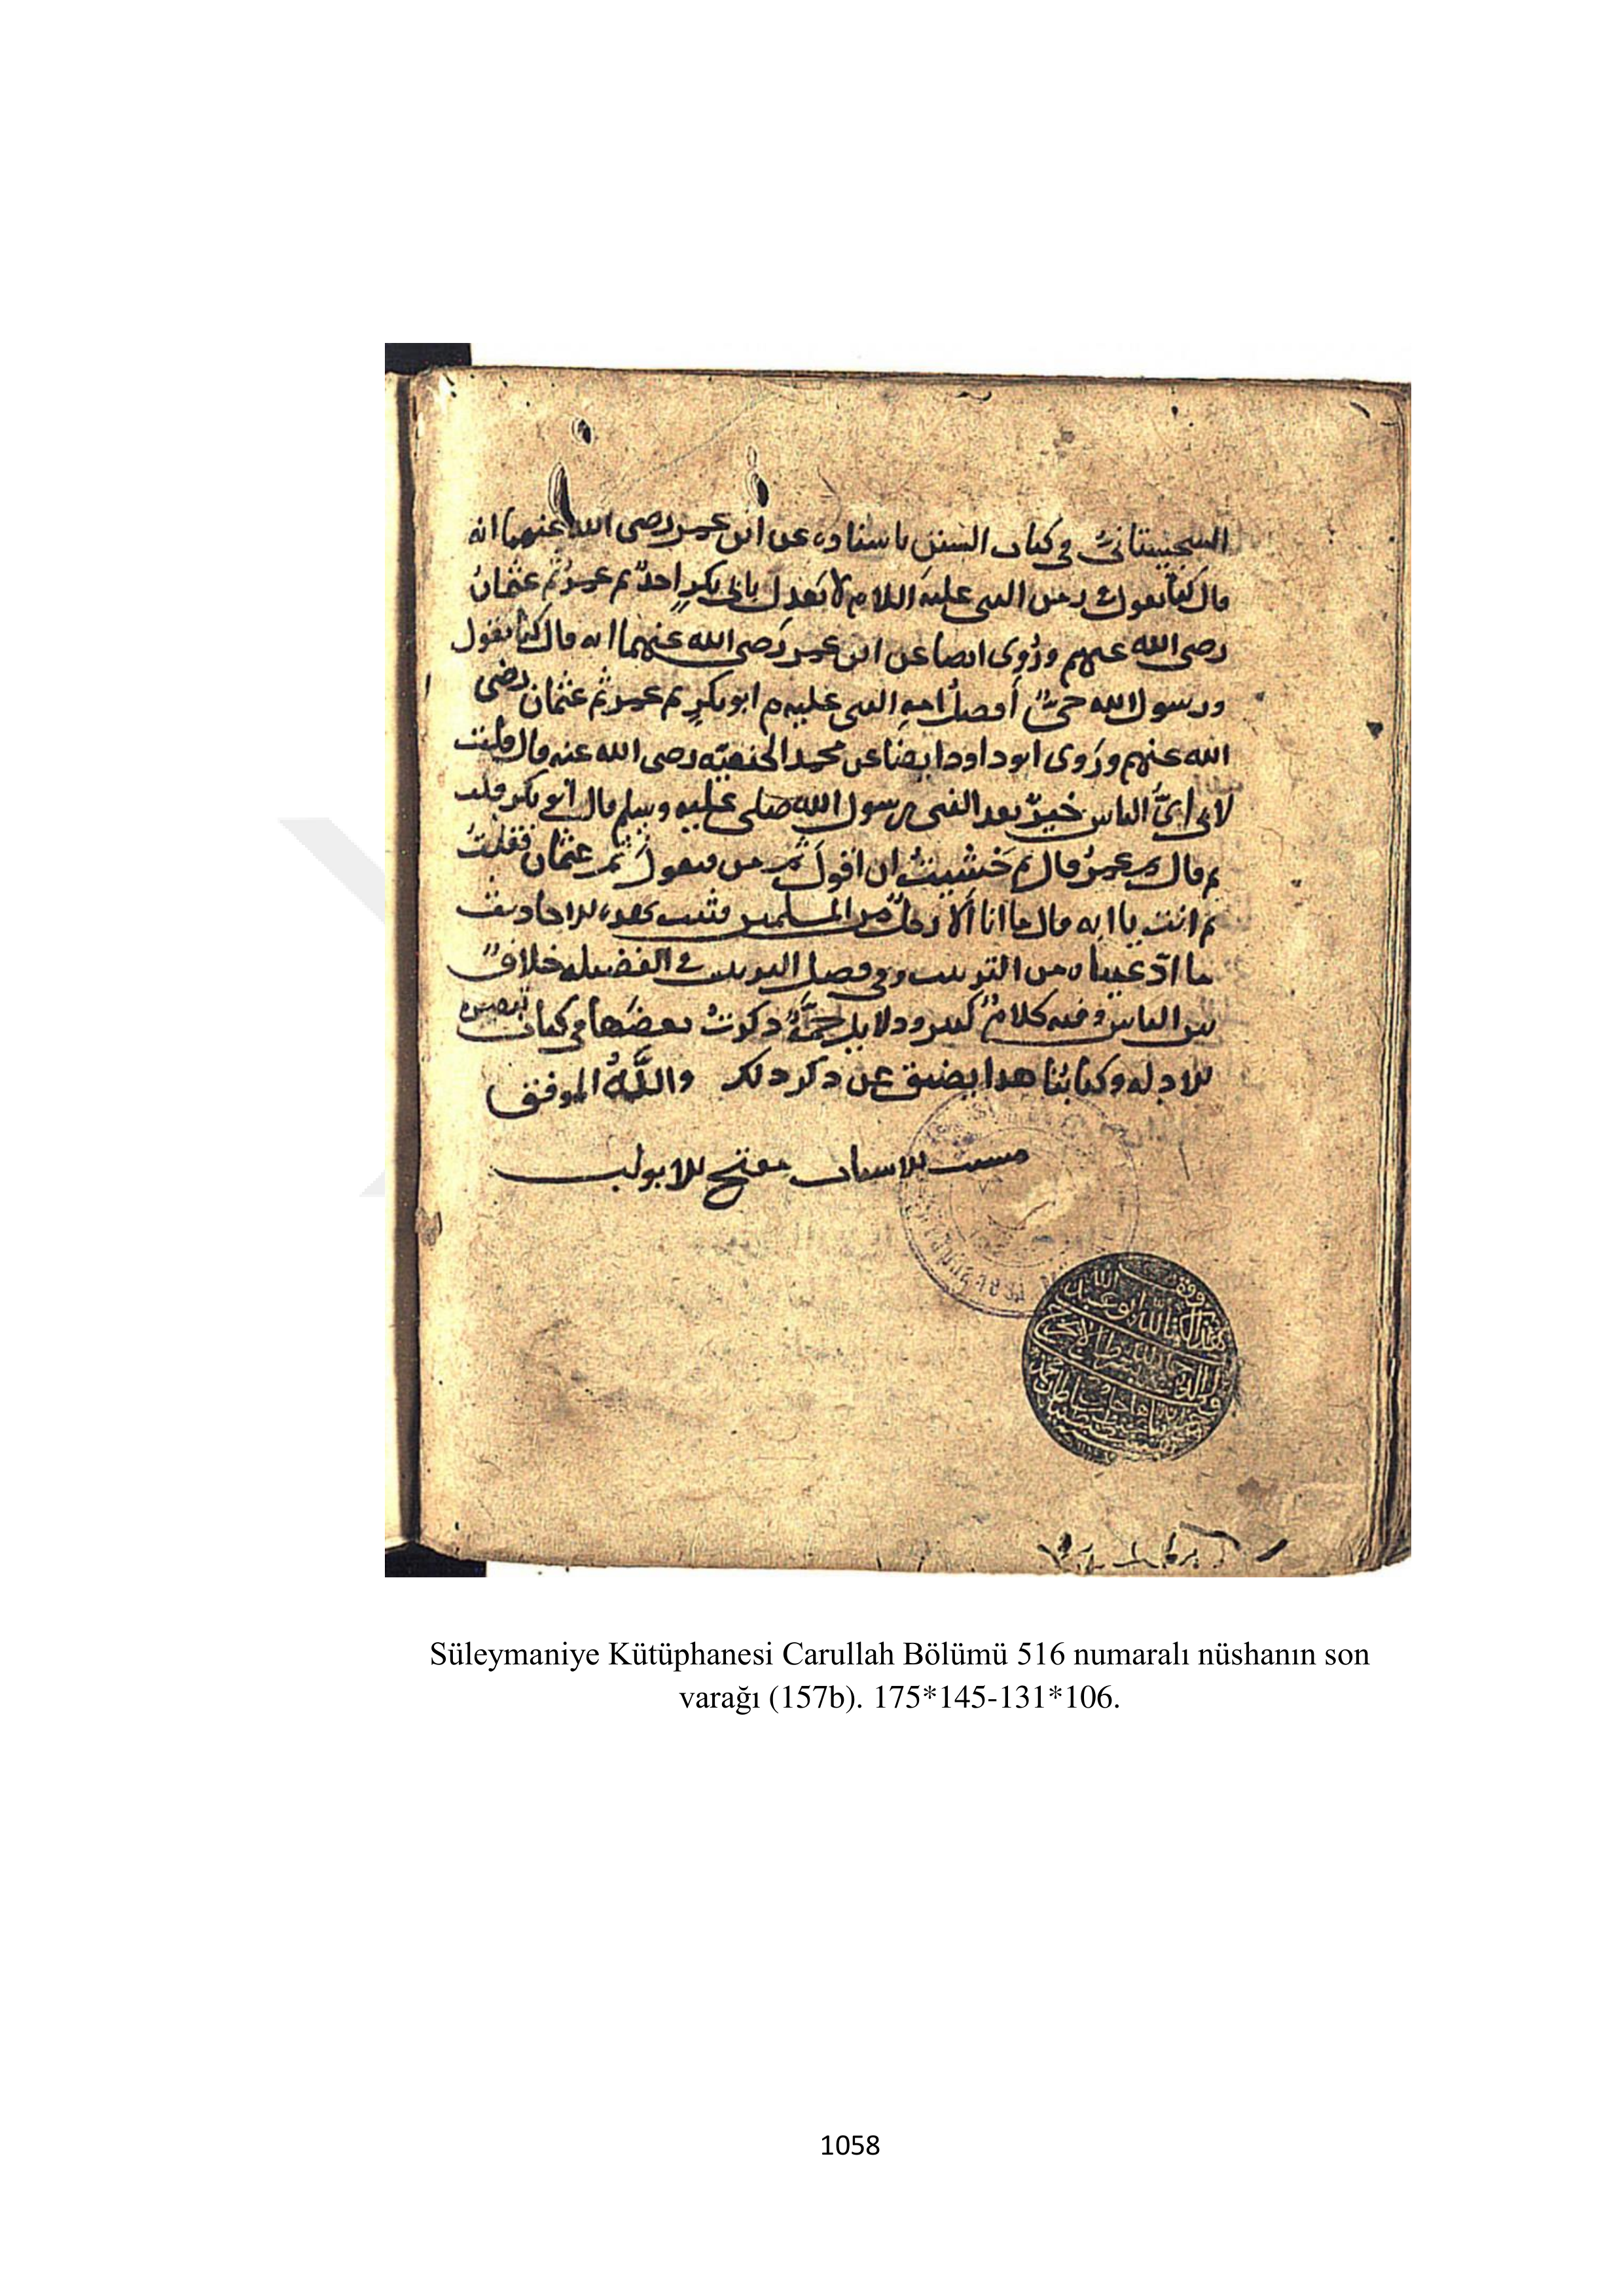 السجستانيُّ في كتاب السنن باسناده عن ابن عمر رضى الله عنهما انه
قال كنا نقول في زمن النبى عليه السلام لا نعدل بابى بكرٍ احدٌ ثم عمرُ ثم عثمانُ
رضى الله عنهم ورُوِى ايضا عن ابن عمر رَضى الله عنهما انه قال كنا نقول
ورسول الله حىٌّ أفضل امه النبى عليه م ابو بكرٍ ثم عمر ثم عثمان رضى
الله عنهم ورَوى ابو داود ايضا عن محمد الحنفيّه رضى الله عنه قال قلت
لابى اىُّ الناس خيرٌ بعد النبى رسول الله صلى عليه وسلم قال أبو بكر قلت
ثم قال ثم عمرُ قال ثم خَشيتُ ان اقولَ ثم من فيقولَ ثم عثمان فقلتُ
ثم انت يا ابه قال ما انا الا رجلٌ من المسلمين فثبت بهذه الاحاديث
ما ادّعيناه من الترتيب وفى فصل الترتيب فى الفضيله خلافٌ
بين الناس وفيه كلامٌ كثير ودلايل جمَّةٌ ذكرتُ بعضَها في كتاب تبصره
الادله وكتابُنا هذا يضيق عن ذكر ذلك واللَّهُ الموفق
مسبب الاسباب مفتح الابواب
Süleymaniye Kütüphanesi Carullah Bölümü 516 numaralı nüshanın son
varağı (157b). 175*145-131*106.
1058